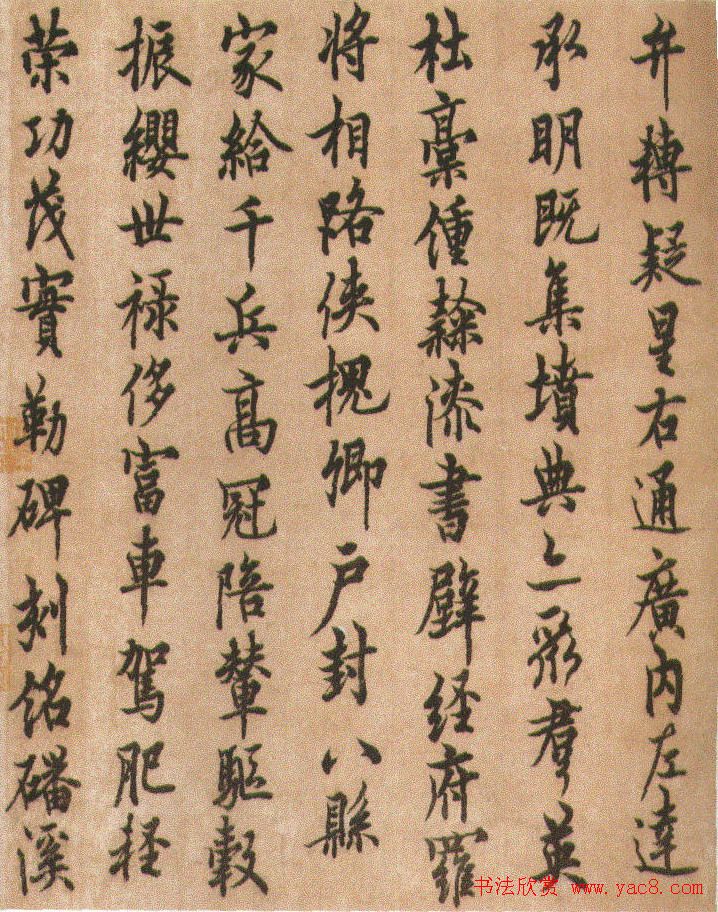 弁轉疑星右通廣内左達
承明既集墳典亦聚群英
杜稾鍾隸漆書壁経府羅
将相路侠槐卿户封八縣
家給千兵高冠陪輦驅轂
振纓世禄侈富車駕肥軽
荣功茂實勒碑刻銘磻溪
书法欣赏 www.yac8.com